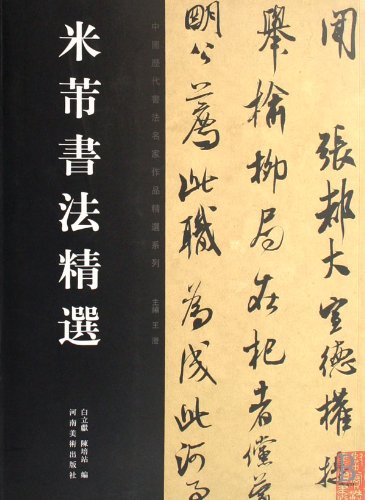 米芾書法精選
中國歷代書法名家作品精選系列 主編 王澄
白立獻 陳培站 編
河南美術出版社
聞 張都大宣德權提
舉榆柳局在杞者儻蒙
明公薦此職為成此河